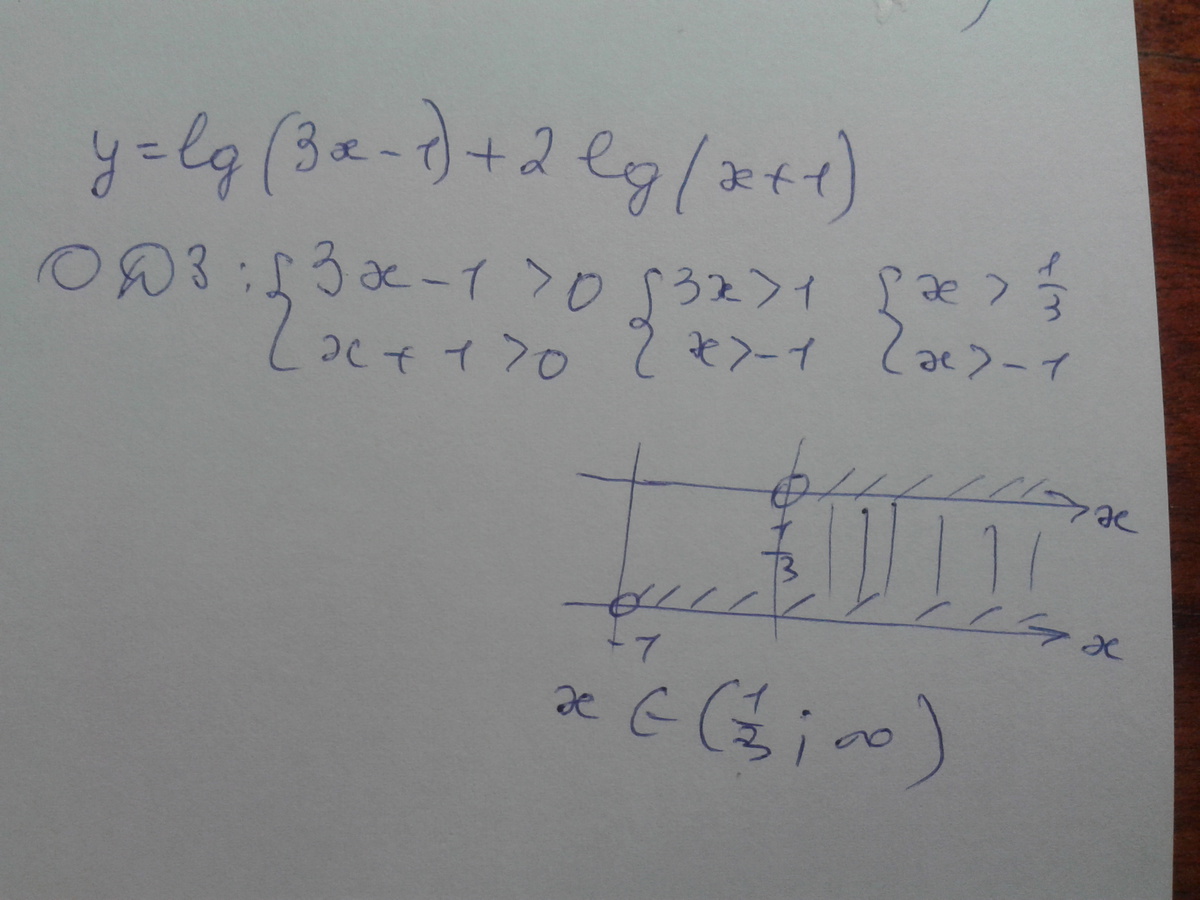 y = lg(3x-1) + 2 lg(x+1)
ОДЗ: { 3x-1 >0 { 3x>1 { x > 1/3
{ x+1>0 { x>-1 { x>-1
x
1/3
x
-1
x ∈ (1/3; ∞)